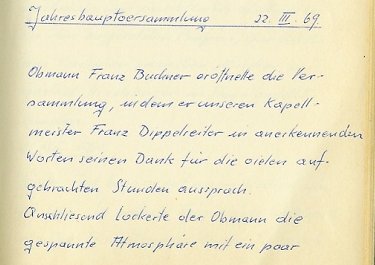 Jahreshauptversammlung 22. III. 69
Obmann Franz Buchner eröffnette die Ver-
sammlung, indem er unseren Kapell-
meister Franz Dippelreiter in anerkennenden
Worten seinen Dank für die vielen auf-
gebrachten Stunden aussprach.
Anschliesend lockerte der Obmann die
gespannte Atmosphäre mit ein paar